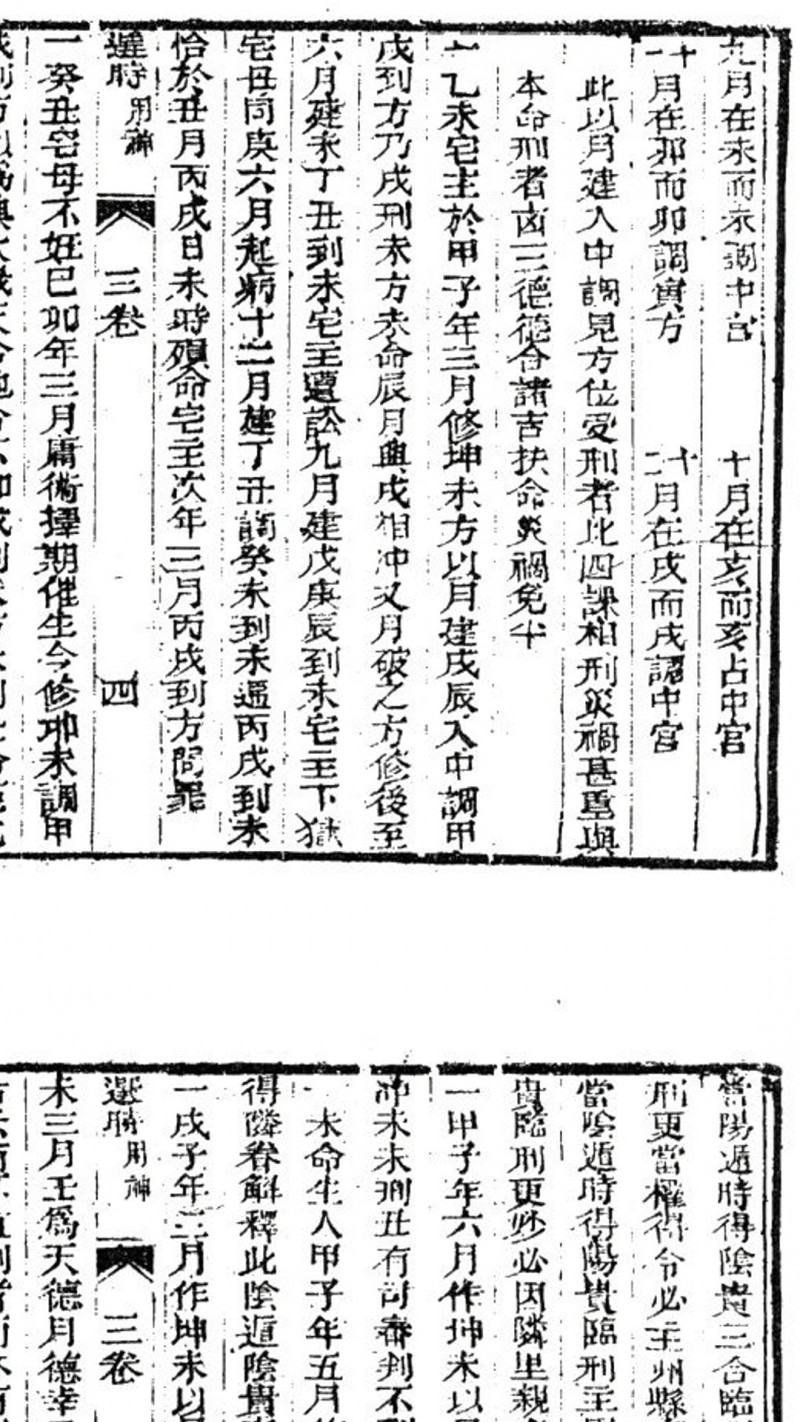 九月在未而未調中宮　十月在亥而亥占中宮
十一月在卯而卯調寅方　十二月在戌而戌調中宮
此以月建入中調見方位受刑者此四課相刑災禍甚重與
本命刑者凶三德德合諸吉扶命災禍免半
一乙未宅主於甲子年三月修坤未方以月建戊辰入中調甲
戌到方乃戌刑未方未命辰月與戌相冲又月破之方修後至
六月建未丁丑到未宅主遭訟九月建戊庚辰到未宅主下獄
宅母同庚六月起病十二月建丁丑調癸未到未遁丙戌到未
恰於丑月丙戌日未時殞命宅主次年三月丙戌到方問罪
選時 用神 三卷 四
一癸丑宅母不妊巳卯年三月庸術擇期催生今修坤未調甲
當陽遁時得陰貴三合臨
刑更當權得令必主州縣
當陰遁時得陽貴臨刑主
貴臨刑更妙必因隣里親
一甲子年六月作坤未以
冲未未刑丑有討審判不
一未命生人甲子年五月
得隣眷解釋此陰遁陰貴
一戌子年三月作坤未以
選時 用神 三卷
未三月壬為天德月德幸